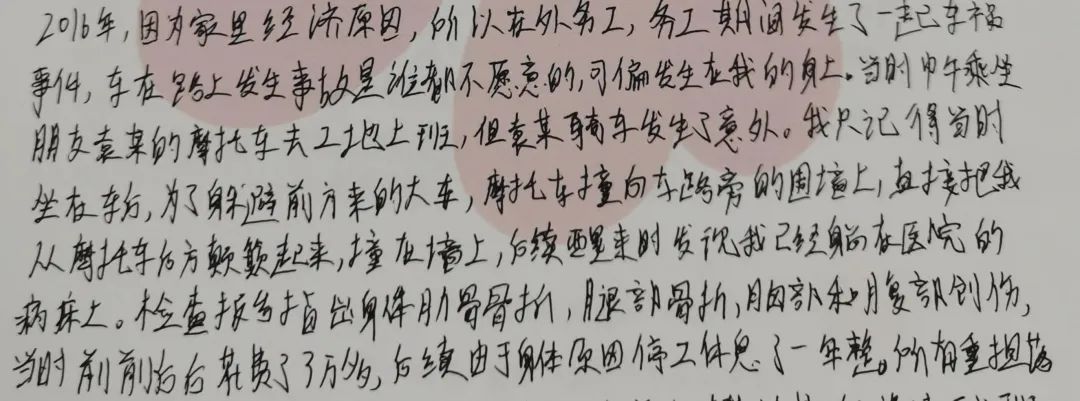 2016年,因为家里经济原因,所以在外务工,务工期间发生了一起车祸
事件,车在路上发生事故是谁都不愿意的,可偏发生在我的身上。当时中午乘坐
朋友袁某的摩托车去工地上班,但袁某骑车发生了意外。我只记得当时
坐在车后,为了躲避前方来的大车,摩托车撞向车路旁的围墙上,直接把我
从摩托车后方颠簸起来,撞在墙上,后续醒来时发现我已经躺在医院的
病床上。检查报告指出身体肋骨骨折,腿部骨折,胸部和腹部创伤,
当时前前后后花费了3万多,后续由于身体原因停工休息了一年整。所有重担落